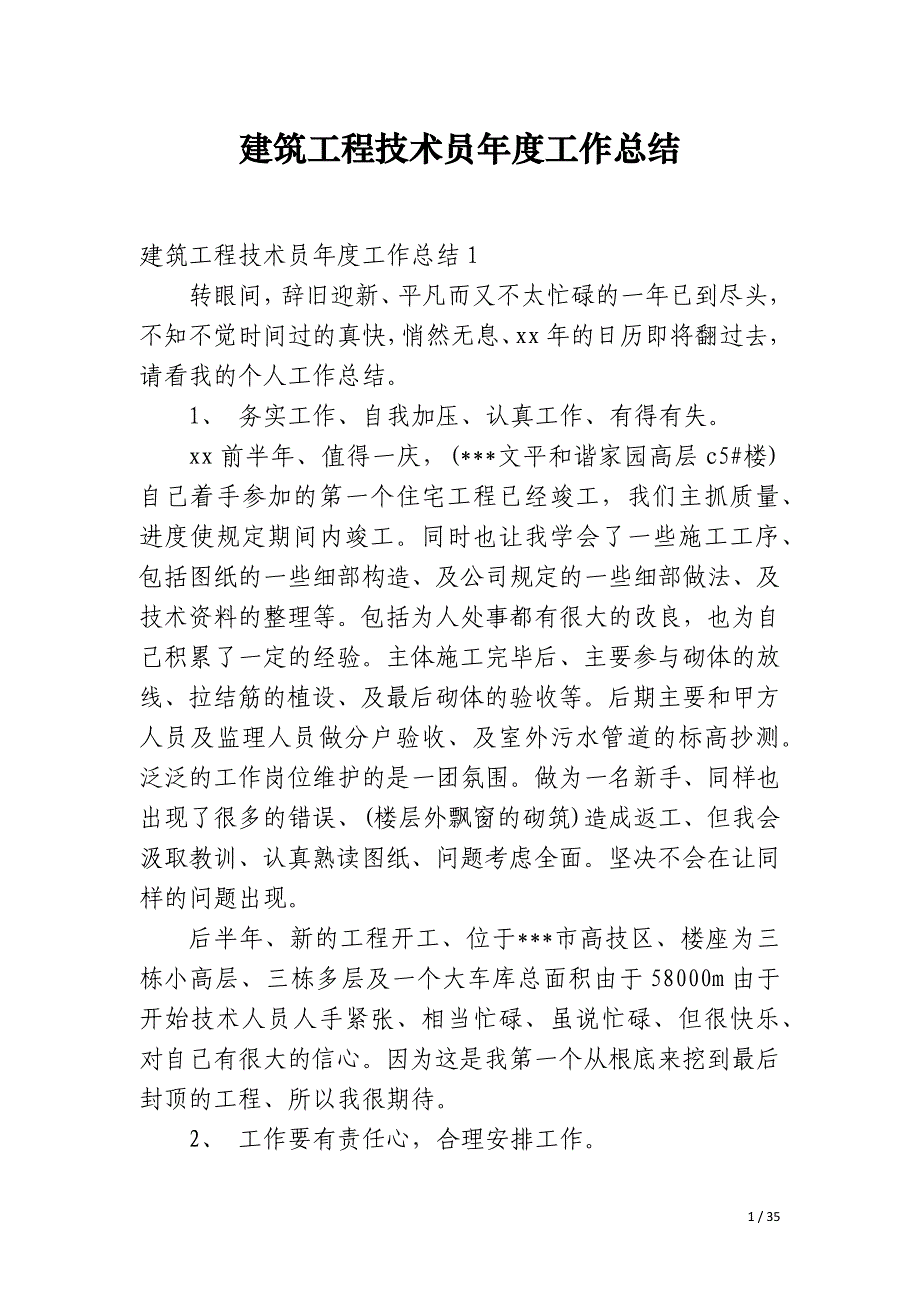 建筑工程技术员年度工作总结
建筑工程技术员年度工作总结1
转眼间,辞旧迎新、平凡而又不太忙碌的一年已到尽头,
不知不觉时间过的真快,悄然无息、xx年的日历即将翻过去,
请看我的个人工作总结。
1、 务实工作、自我加压、认真工作、有得有失。
xx前半年、值得一庆，(***文平和谐家园高层c5#楼)
自己着手参加的第一个住宅工程已经竣工，我们主抓质量、
进度使规定期间内竣工。同时也让我学会了一些施工工序、
包括图纸的一些细部构造、及公司规定的一些细部做法、及
技术资料的整理等。包括为人处事都有很大的改良，也为自
己积累了一定的经验。主体施工完毕后、主要参与砌体的放
线、拉结筋的植设、及最后砌体的验收等。后期主要和甲方
人员及监理人员做分户验收、及室外污水管道的标高抄测。
泛泛的工作岗位维护的是一团氛围。做为一名新手、同样也
出现了很多的错误、(楼层外飘窗的砌筑)造成返工、但我会
汲取教训、认真熟读图纸、问题考虑全面。坚决不会在让同
样的问题出现。
后半年、新的工程开工、位于***市高技区、楼座为三
栋小高层、三栋多层及一个大车库总面积由于58000m由于
开始技术人员人手紧张、相当忙碌、虽说忙碌、但很快乐、
对自己有很大的信心。因为这是我第一个从根底来挖到最后
封顶的工程、所以我很期待。
2、 工作要有责任心，合理安排工作。
1 / 35